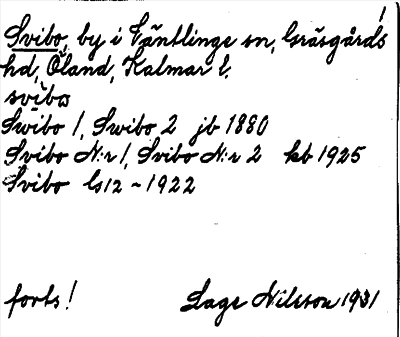 Svibo, by i Ventlinge sn, Gräsgårds
hd, Öland, Kalmar l.
svibo
Swibo 1, Swibo 2 jb 1880
Svibo N:r 1, Svibo N:r 2 kb 1925
Svibo Gs12 ~ 1922
forts! Lage Nilsson 1931